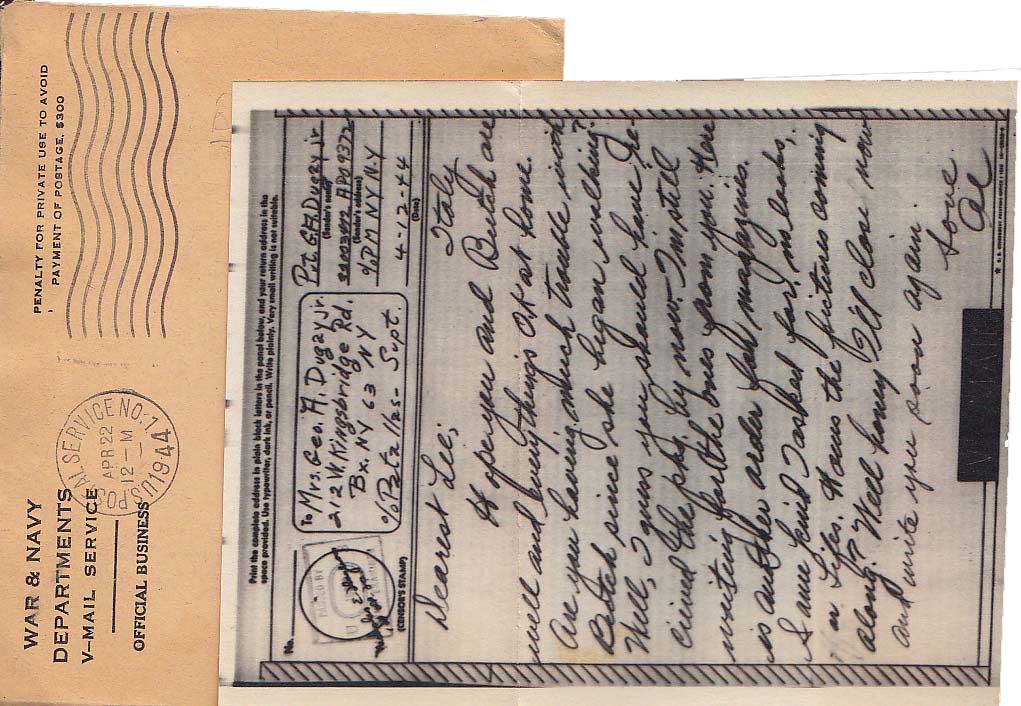 WAR & NAVY
DEPARTMENTS
V-MAIL SERVICE
OFFICIAL BUSINESS
U.S. POSTAL SERVICE NO. 1
APR 22
12-M
1944
PENALTY FOR PRIVATE USE TO AVOID
PAYMENT OF POSTAGE, $300
Print the complete address in plain block letters in the panel below, and your return address in the
space provided. Use typewriter, dark ink, or pencil. Write plainly. Very small writing is not suitable.
No.
(CENSOR'S STAMP)
To Mrs. Geo. A. Dugay jr.
212 W. Kingsbridge Rd.
Bx. NY 63 NY
c/o Supt.
Pvt G.A. Dugay jr
(Sender's name)
APO 9372
(Sender's address)
c/o PM NY N.Y
4-12-44
(Date)
Italy
Dearest Lee;
Hope you and Butch are
well and everythings O.K at home.
Are you having much trouble with
Butch since she began walking?
Well, I guess you should have re-
cieved the pkg. by now. I'm still
waiting for the ones from you. Here
is another order for magazines.
I sure
in Lifes. Hows the pictures coming
along? Well honey I'll close now
and write you soon again.
Love
Al